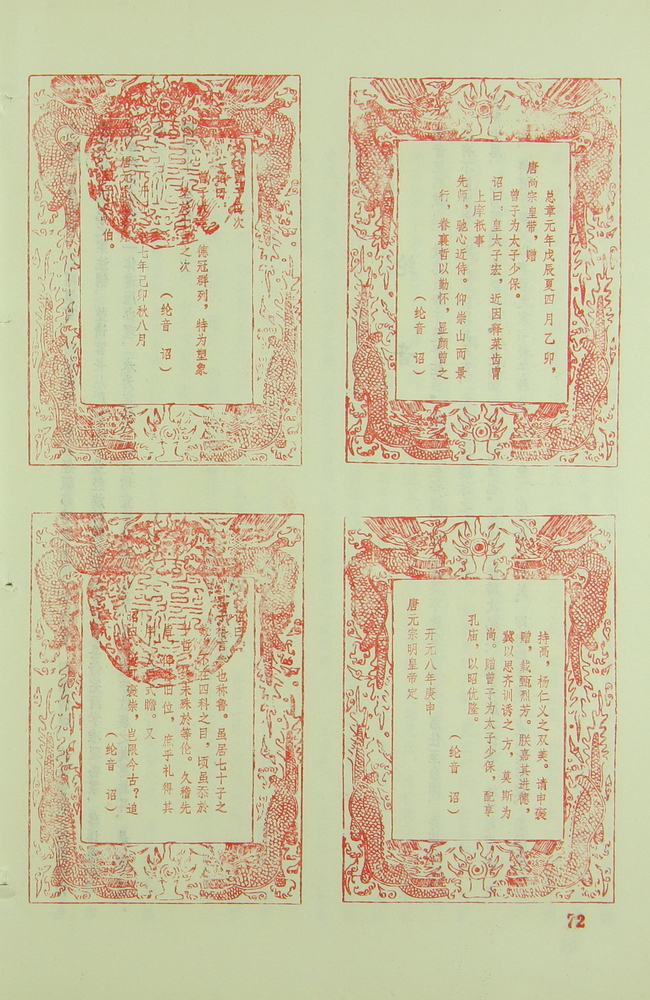 总章元年戊辰夏四月乙卯，
唐高宗皇带，赠
曾子为太子少保。
诏曰：皇太子宏，近因释菜齿胄
上庠祇事
先师，驰心近侍。仰崇山而景
行，眷襄哲以勤怀，显颜曾之
（纶音 诏）
持高，杨仁义之双美。请申褒
赠，载甄烈芳。朕嘉其进德，
冀以思齐训诱之方，莫斯为
尚。赠曾子为太子少保，配享
孔庙，以昭优隆。
（纶音 诏）
开元八年庚申
唐元宗明皇帝定
次
德冠群列，特为塑象
之次
（纶音 诏）
七年己卯秋八月
伯。
曰
也称鲁。虽居七十子之
不在四科之目，顷虽忝於
未殊於等伦。久稽先
旧位，庶乎礼得其
式赠。又
褒崇，岂限今古？追
（纶音 诏）
72